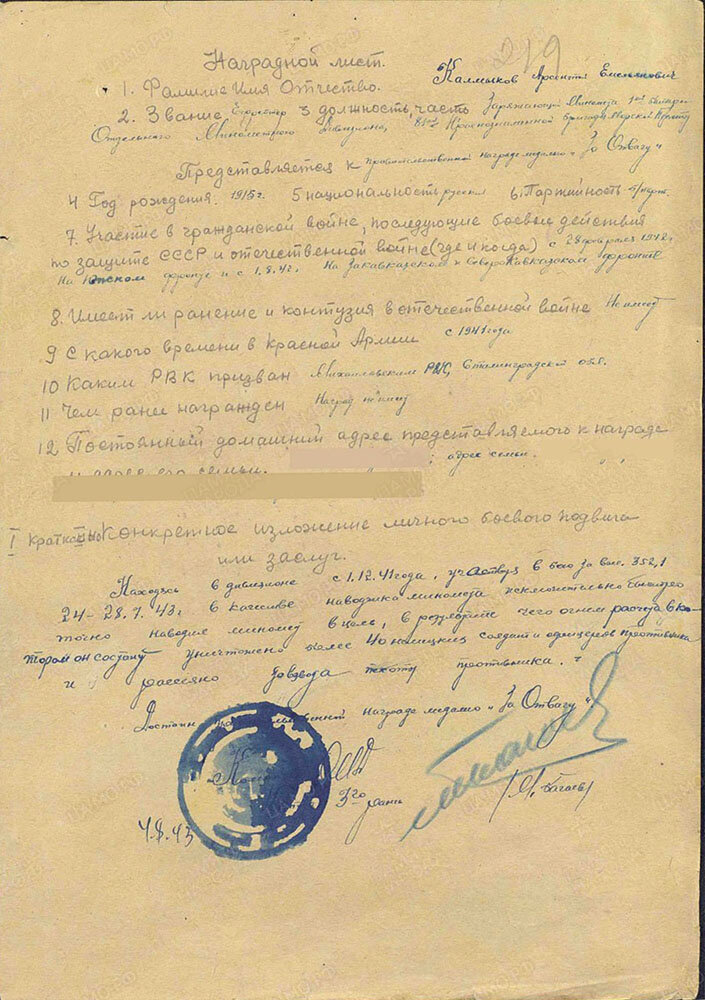 219
Наградной лист.
1. Фамилие Имя Отчество. Калмыков Арсентий Емельянович
2. Звание Ефрейтор 3 должность, часть Заряжающий Миномета 1ой батареи
Отдельного Минометного Дивизиона, 81ой Краснознаменной бригады Морской пехоты
Представляется к правительственной награде медалью "За Отвагу"
4 Год рождения. 1915г. 5 национальность русский 6. Партийность б/парт.
7. Участие в гражданской войне, последующие боевые действия
по защите СССР и отечественной войне (где и когда) с 28 февраля 1942г.
На Южном фронте и с 1.8.42г. На Закавказском и Северокавказском фронте
8. Имеет ли ранение и контузия в отечественной войне Не имеет
9 С какого времени в Красной Армии с 1941 года
10 Каким РВК призван Михайловским РВК, Сталинградской обл.
11 Чем ранее награжден Наград не имеет
12. Постоянный домашний адрес представляемого к награде
и адрес его семьи. адрес семьи.
I Краткое конкретное изложение личного боевого подвига
или заслуг.
Находясь в дивизионе с 1.12.41 года, участвуя в бою за выс. 352,1
24-28.7.43г. в качестве наводчика миномета исключительно быстро
точно наводил миномет в цель, в результате чего огнем расчета в ко-
тором он состоит уничтожено более 40 немецких солдат и офицеров противника
и рассеяно до взвода пехоты противника.
Достоин правительственной награде медалью "За Отвагу"
3го ранга
/М. Багаев/
4.8.43